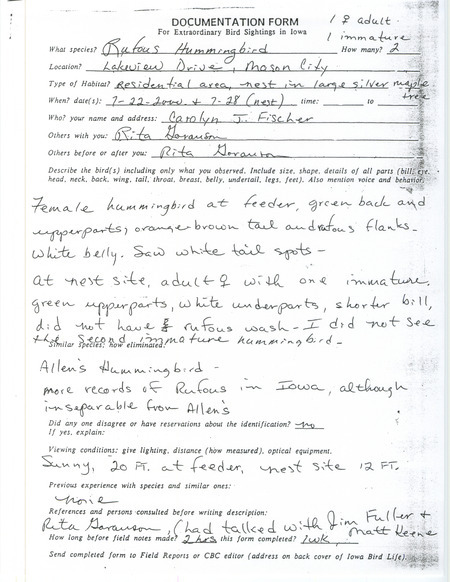 DOCUMENTATION FORM
For Extraordinary Bird Sightings in Iowa
1 ♀ adult
1 immature
What species? Rufous Hummingbird How many? 2
Location? Lakeview Drive, Mason City
Type of Habitat? Residential area, nest in large silver maple tree
When? date(s): 7-22-2000 & 7-28 (nest) time: to
Who? your name and address: Carolyn J. Fischer
Others with you: Rita Goranson
Others before or after you: Rita Goranson
Describe the bird(s) including only what you observed. Include size, shape, details of all parts (bill, eye,
head, neck, back, wing, tail, throat, breast, belly, undertail, legs, feet). Also mention voice and behavior.
Female hummingbird at feeder, green back and
upperparts, orange-brown tail and rufous flanks.
White belly. Saw white tail spots -
At nest site, adult ♀ with one immature,
green upperparts, white underparts, shorter bill,
did not have rufous wash - I did not see
the second immature hummingbird -
Similar species: how eliminated:
Allen's Hummingbird -
more records of Rufous in Iowa, although
inseparable from Allen's
Did any one disagree or have reservations about the identification? no
If yes, explain:
Viewing conditions: give lighting, distance (how measured), optical equipment.
Sunny, 20 FT. at feeder, nest site 12 FT.
Previous experience with species and similar ones:
none
References and persons consulted before writing description:
Rita Goranson, (had talked with Jim Fuller + Matt Kenne
How long before field notes made? 2 hrs this form completed? 1 wk
Send completed form to Field Reports or CBC editor (address on back cover of Iowa Bird Life).